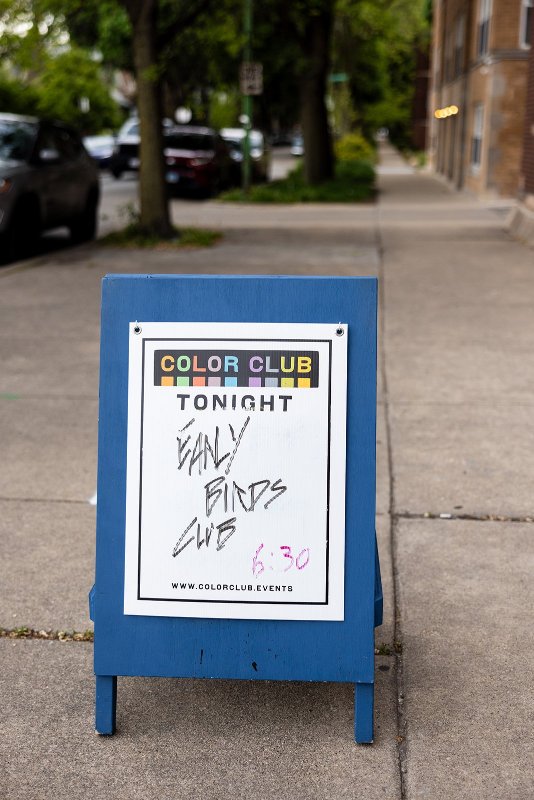 COLOR CLUB
TONIGHT
EARLY
BIRDS
CLUB
6:30
WWW.COLORCLUB.EVENTS